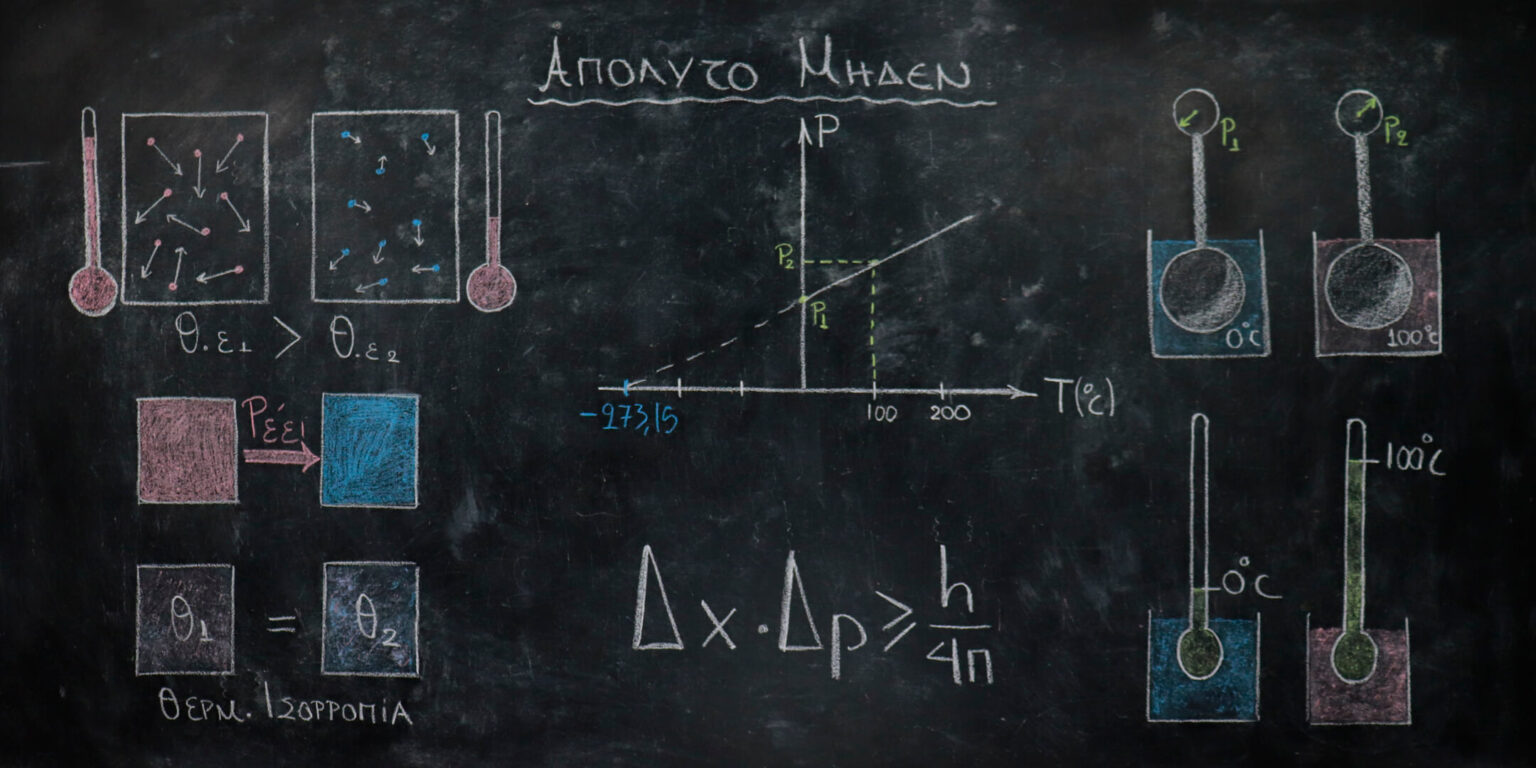 ΑΠΟΛΥΤΟ ΜΗΔΕΝ
θ.ε1 > θ.ε2
Ρέει
θ1 = θ2
ΘΕΡΜ. ΙΣΟΡΡΟΠΙΑ
P
P2
P1
-273,15
100
200
T(°C)
Δx·Δp ≥ h/4π
P1
P2
0°C
100°C
0°C
100°C